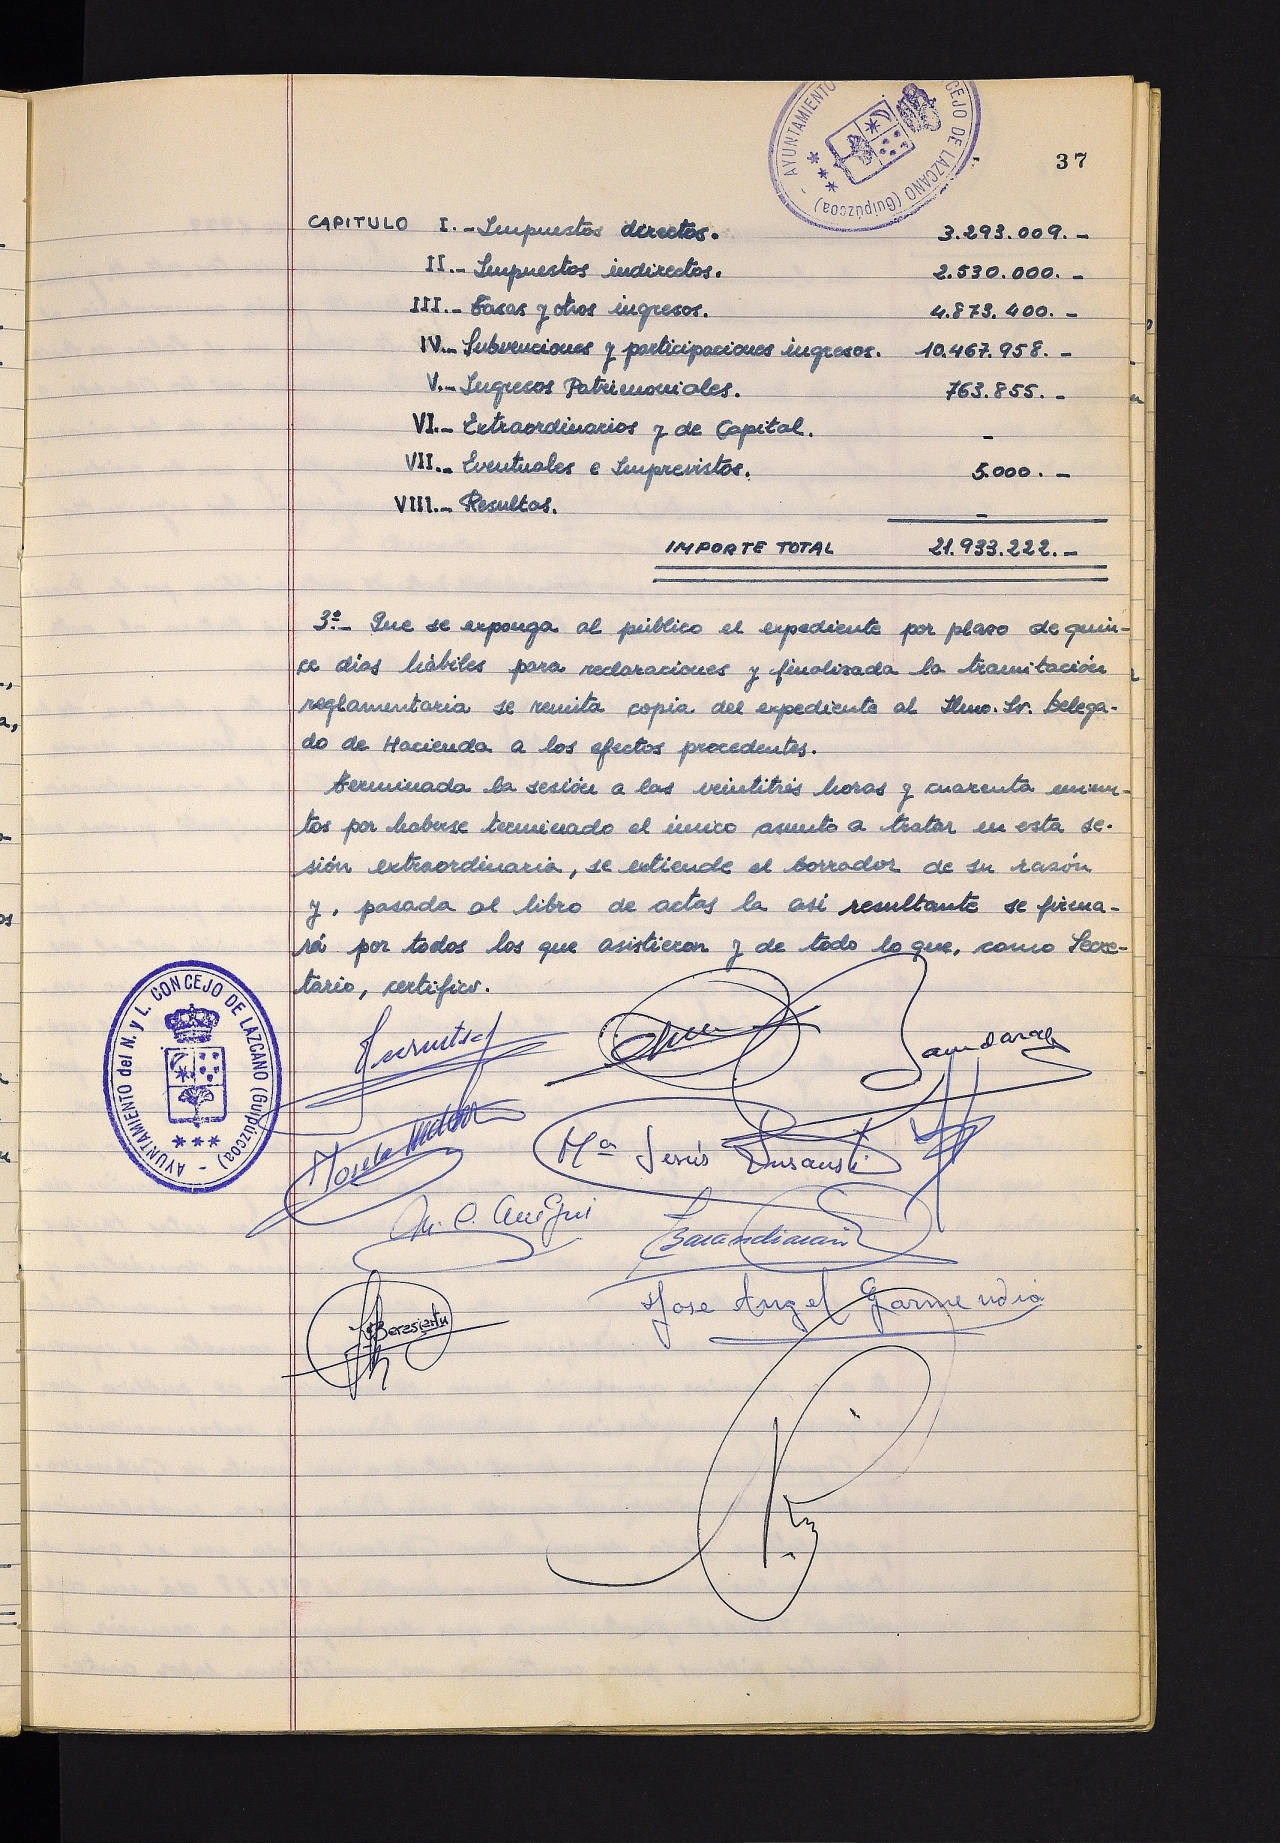 AYUNTAMIENTO
CEJO DE LAZCANO (Guipúzcoa)
37
CAPITULO I.- Impuestos directos. 3.293.009.-
II.- Impuestos indirectos. 2.530.000.-
III.- Tasas y otros ingresos. 4.873.400.-
IV.- Subvenciones y participaciones ingresos. 10.467.958.-
V.- Ingresos Patrimoniales. 763.855.-
VI.- Extraordinarios y de Capital. -
VII.- Eventuales e Imprevistos. 5.000.-
VIII.- Resultas. -
IMPORTE TOTAL 21.933.222.-
3º.- Que se exponga al público el expediente por plazo de quin-
ce días hábiles para reclamaciones y finalizada la tramitación
reglamentaria se remita copia del expediente al Ilmo. Sr. Delega-
do de Hacienda a los efectos procedentes.
Terminada la sesión a las veintitrés horas y cuarenta minu-
tos por haberse terminado el único asunto a tratar en esta se-
sión extraordinaria, se extiende el borrador de su razón
y, pasada al libro de actas la así resultante se firma-
rá por todos los que asistieron y de todo lo que, como Secre-
tario, certifico.
AYUNTAMIENTO del N. y L. CONCEJO DE LAZCANO (Guipúzcoa)
Mª Jesús
Barandiaran
Jose Angel Garmendia